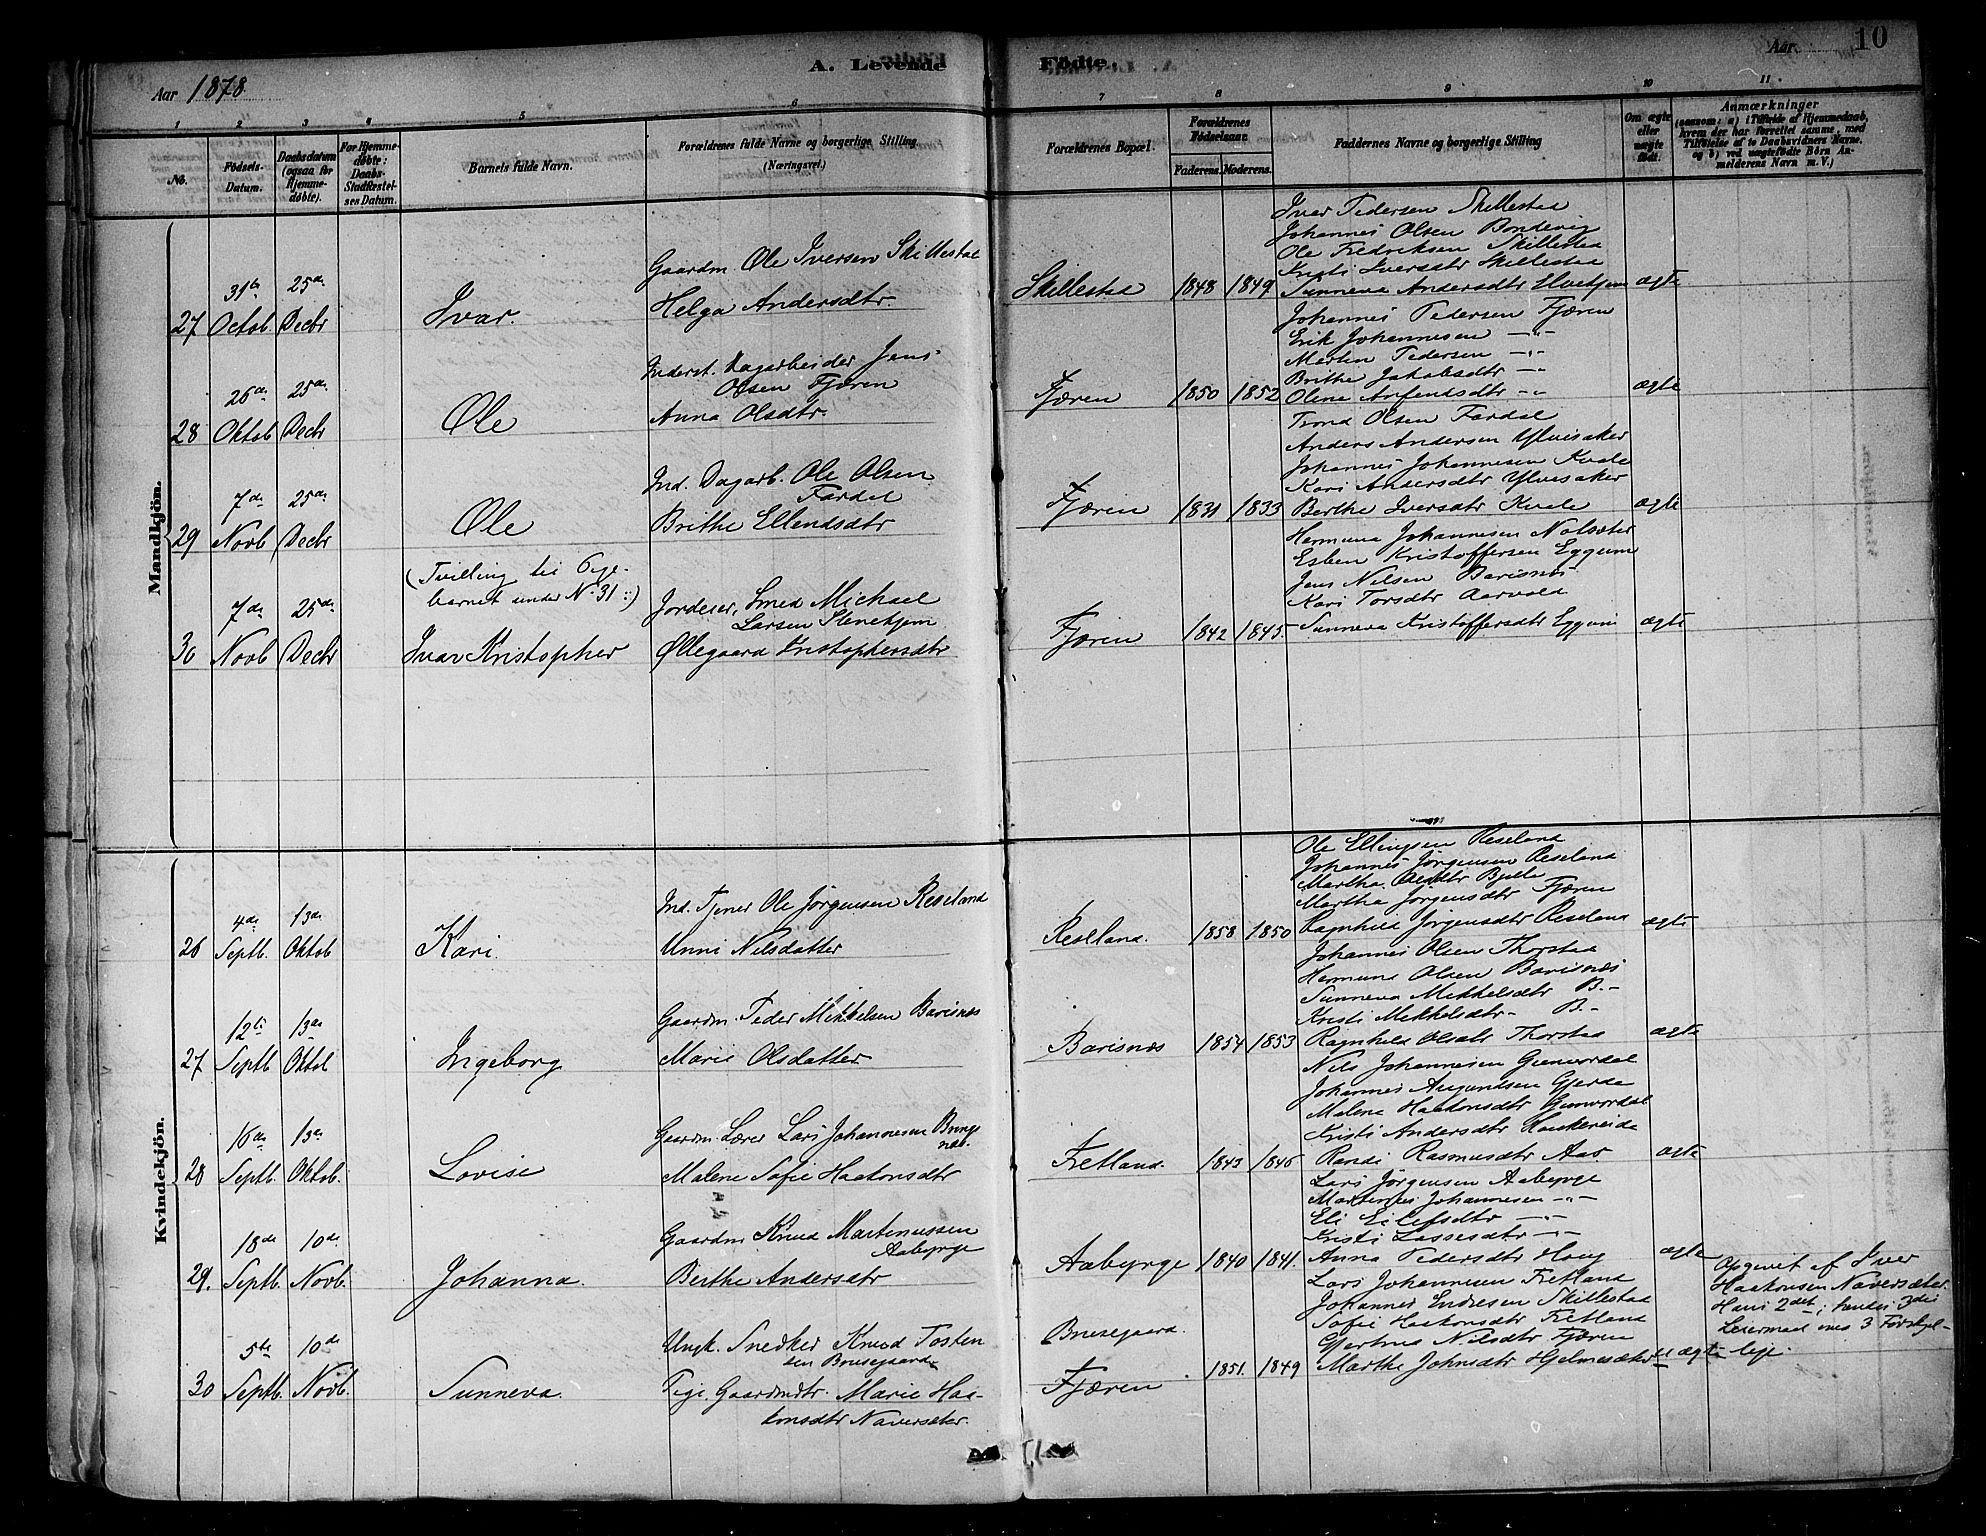 Aar 1878.
A. Levende
Födte.
Aar 10
1 2 3 4 5 6 7 8 9 10 11
No.
Födsels-
Datum.
Daabsdatum
(ogsaa for
Hjemme-
døbte).
For Hjemme-
døbte:
Daabs-
Stadfæstel-
ses Datum.
Barnets fulde Navn.
Forældrenes fulde Navne og borgerlige Stilling
(Næringsvei).
Forældrenes Bopæl.
Forældrenes
Födselsaar.
Faderens. Moderens.
Faddernes Navne og borgerlige Stilling
Om ægte
eller
uægte
født.
Anmærkninger
(saasom: a) i Tilfælde af Hjemmedaab,
hvem der har forrettet samme, med
Tilföielse af to Daabsvidners Navne,
og b) ved uægtefödte Börn An-
melderens Navn m. V.)
Mandkjön.
27
31te
Octob
25de
Decbr
Ivar.
Gaardm. Ole Iversen Skillestad
Helga Andersdtr.
Skillestad
1848
1849
Iver Pedersen Skillestad
Johannes Olsen Bondevig
Ole Fredriksen Skillestad
Kristi Iversdtr Skillestad
Sunneva Andersdtr
ægte
28
26de
Oktob
25de
Decbr
Ole
Inderst. Dagarbeider Jens
Olsen Fjæren
Anna Olsdtr.
Fjæren
1850
1852
Johannes Pedersen Fjæren
Erik Johannesen — " —
Martin Pedersen — " —
Brithe Jakobsdtr — " —
Olina Anfindsdtr — " —
ægte
29
7de
Novb
25de
Decbr
Ole
Ind. Dagarb. Ole Olsen
Fardal
Brithe Ellendsdtr
Fjæren
1831
1833
Trond Olsen Fardal
Anders Andersen Ylvisaker
Johannes Johannesen Kvale
Kari Andersdtr Ylvisaker
Berthe Iversdtr Kvale
ægte
30
7de
Novb
25de
Decbr
(Tvilling til Pige-
barnet under No 31:)
Ivar Kristopher
Jordeier, Smed Michael
Larsen Stenehjem
Øllegaard Kristophersdtr
Fjæren
1842
1845
Hermund Johannesen Notsæter
Esben Kristoffersen Eggum
Jens Nilsen Barisnæs
Kari Torsdtr Aarvold
Sunneva Kristoffersdtr Eggum
ægte
Kvindekjön.
26
4de
Septb.
13de
Oktob
Kari.
Ind. Tjener Ole Jörgensen Reseland
Unni Nilsdatter
Reseland.
1858
1850
Ole Ellingsen Reseland
Johannes Jörgensen Reseland
Martha Olsdtr Bjelle
Martha Jörgensdtr Fjæren
Ragnhild Jörgensdtr Reseland
ægte
27
12te
Septb
13de
Oktob
Ingeborg
Gaardm. Peder Mikkelsen Barisnæs
Marie Olsdatter
Barisnæs
1854
1853
Johannes Olsen Thorstad
Hermund Olsen Barisnæs
Sunneva Mikkelsdtr B. —
Kristi Mikkelsdtr — B. —
Ragnhild Olsdtr Thorstad
ægte
28
16de
Septb.
13de
Oktob.
Lovise
Gaardm. Lærer Lars Johannesen
Malene Sofie Haakonsdtr
Fretland.
1843
1846
Nils Johannesen Gunvordal
Johannes Amundsen Gjerde
Malena Haakonsdtr Gunvordal
Kristi Andersdtr Haukereide
Randi Rasmusdtr Aas
ægte
29.
18de
Septb.
10de
Novb.
Johanna.
Gaardm Knud Martinussen
Aabyrge
Berthe Andersdtr
Aabyrge
1840
1841.
Lars Jörgensen Aabyrge
Martinus Johannesen — " —
Eli Eilefsdtr — " —
Kristi Lassesdtr — " —
Anna Pedersdtr Haug
ægte
30
5te
Septb.
10de
Novb.
Sunneva.
Ungk. Snedker Knud Tosten
sen Bruegaard
Pige. Gaardmdtr. Marie Haa-
konsdtr Naversæter.
Bruegaard.
Fjæren
1851.
1849
Lars Johannesen Fretland
Johannes Endresen Skillestad
Sofie Haakonsdtr Fretland
Gjertrud Nilsdtr Fjæren
Marthe Johnsdtr Hjelmesæter
uægte
Opgivet af Iver
Haakonsen Naversæter.
Hans 2det; hendes 3die
Leiermaal med 3 Forskjel-
lige.